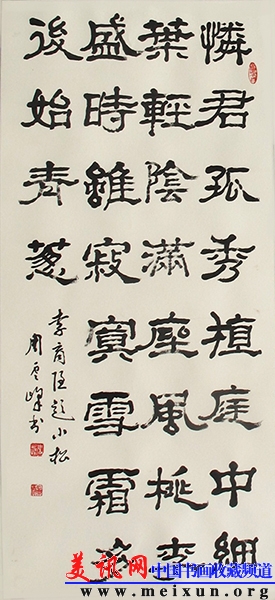 憐君孤秀植庭中細
葉輕陰滿座風桃李
盛時雖寂寞雪霜多
後始青葱
李商隱题小松
周雲峰书
美讯网 中国书画收藏频道
www.meixun.net